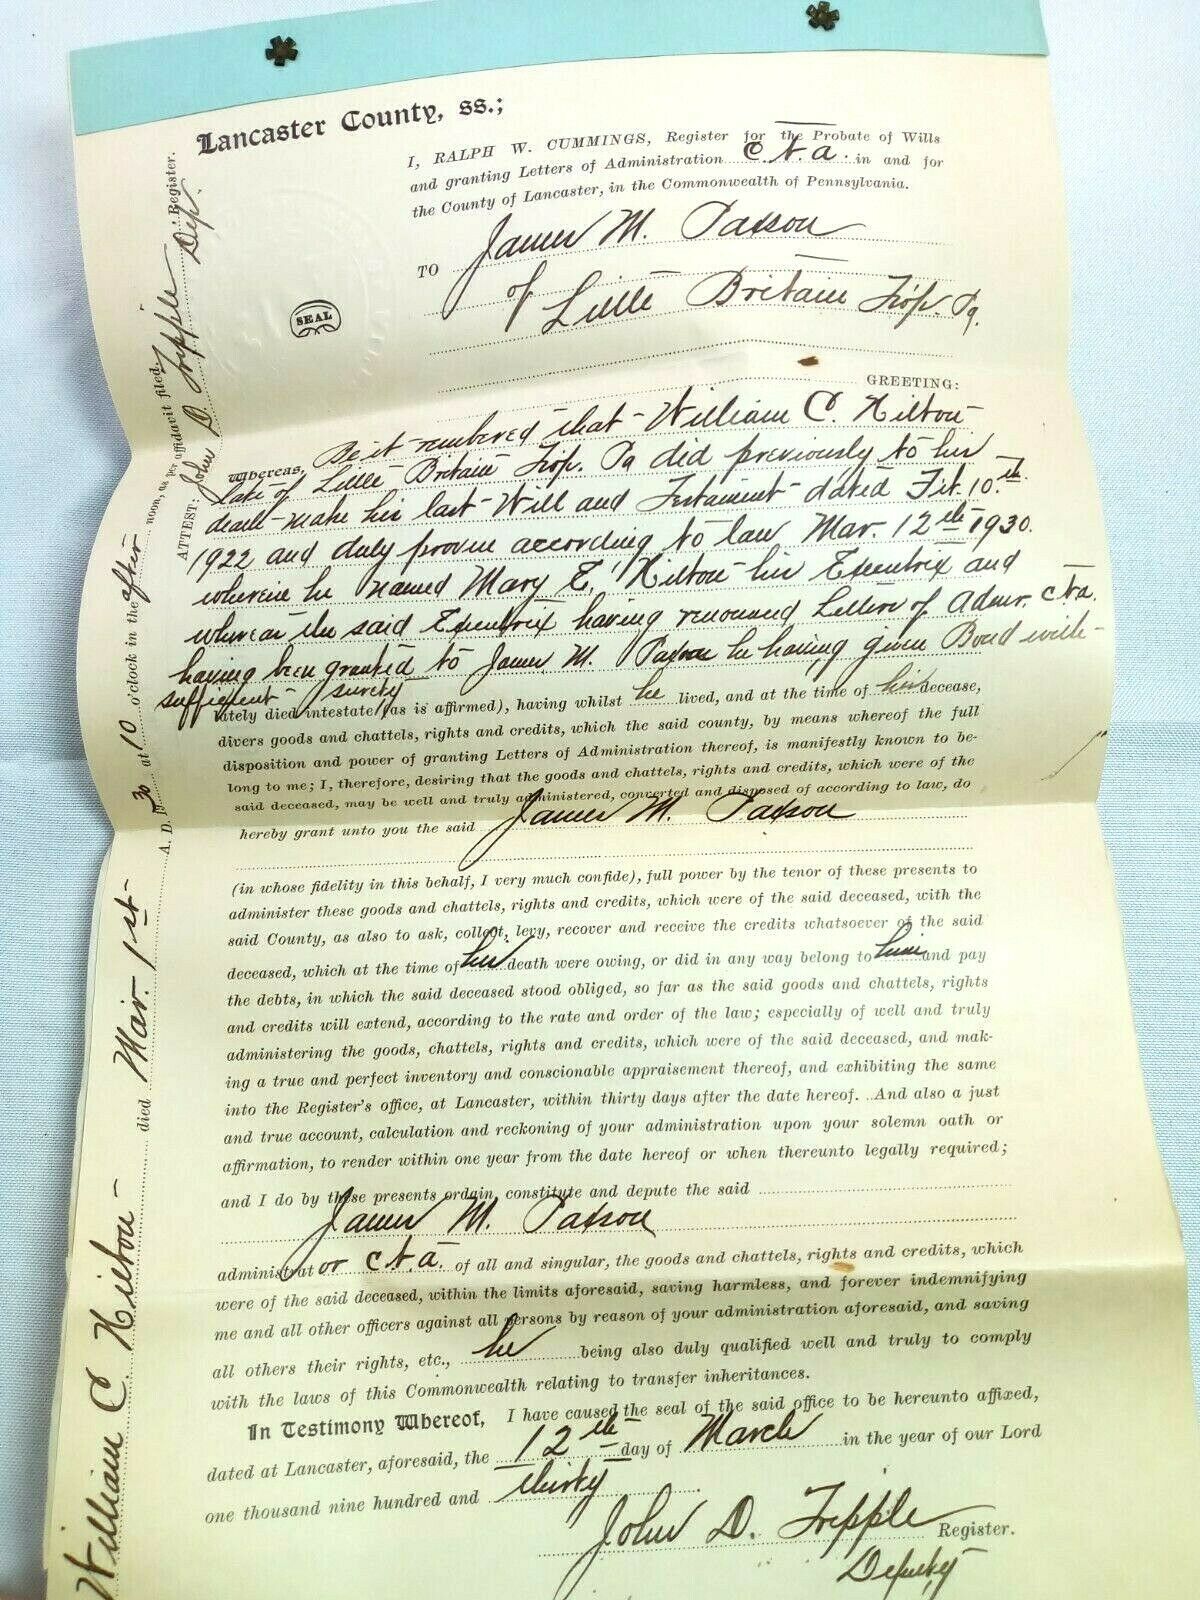 Lancaster County, ss.;
I, RALPH W. CUMMINGS, Register for the Probate of Wills
and granting Letters of Administration C.T.A. in and for
the County of Lancaster, in the Commonwealth of Pennsylvania.
TO James M. Paxson
of Little Britain Twp. Pa.
SEAL
GREETING:
Whereas, Be it remembered that William C. Hilton
late of Little Britain Twp. Pa did previously to his
death make his last Will and Testament dated Feb. 10th
1922 and duly proven according to law Mar. 12th 1930.
wherein he named Mary E. Hilton his Executrix and
whereas the said Executrix having renounced Letters of Admr. cta
having been granted to James M. Paxson he having given Bond with
sufficient surety
lately died intestate (as is affirmed), having whilst he lived, and at the time of his decease,
divers goods and chattels, rights and credits, which the said county, by means whereof the full
disposition and power of granting Letters of Administration thereof, is manifestly known to be-
long to me; I, therefore, desiring that the goods and chattels, rights and credits, which were of the
said deceased, may be well and truly administered, converted and disposed of according to law, do
hereby grant unto you the said James M. Paxson
(in whose fidelity in this behalf, I very much confide), full power by the tenor of these presents to
administer these goods and chattels, rights and credits, which were of the said deceased, with the
said County, as also to ask, collect, levy, recover and receive the credits whatsoever of the said
deceased, which at the time of his death were owing, or did in any way belong to him and pay
the debts, in which the said deceased stood obliged, so far as the said goods and chattels, rights
and credits will extend, according to the rate and order of the law; especially of well and truly
administering the goods, chattels, rights and credits, which were of the said deceased, and mak-
ing a true and perfect inventory and conscionable appraisement thereof, and exhibiting the same
into the Register's office, at Lancaster, within thirty days after the date hereof. And also a just
and true account, calculation and reckoning of your administration upon your solemn oath or
affirmation, to render within one year from the date hereof or when thereunto legally required;
and I do by these presents ordain, constitute and depute the said
James M. Paxson
administrator c.t.a. of all and singular, the goods and chattels, rights and credits, which
were of the said deceased, within the limits aforesaid, saving harmless, and forever indemnifying
me and all other officers against all persons by reason of your administration aforesaid, and saving
all others their rights, etc., he being also duly qualified well and truly to comply
with the laws of this Commonwealth relating to transfer inheritances.
In Testimony Whereof, I have caused the seal of the said office to be hereunto affixed,
dated at Lancaster, aforesaid, the 12th day of March in the year of our Lord
one thousand nine hundred and thirty
John D. Tripple Register.
Deputy
William C. Hilton died Mar. 1st A. D. 1930 at 10 o'clock in the after noon, as per affidavit filed.
ATTEST: John D Tripple Dep. Register.